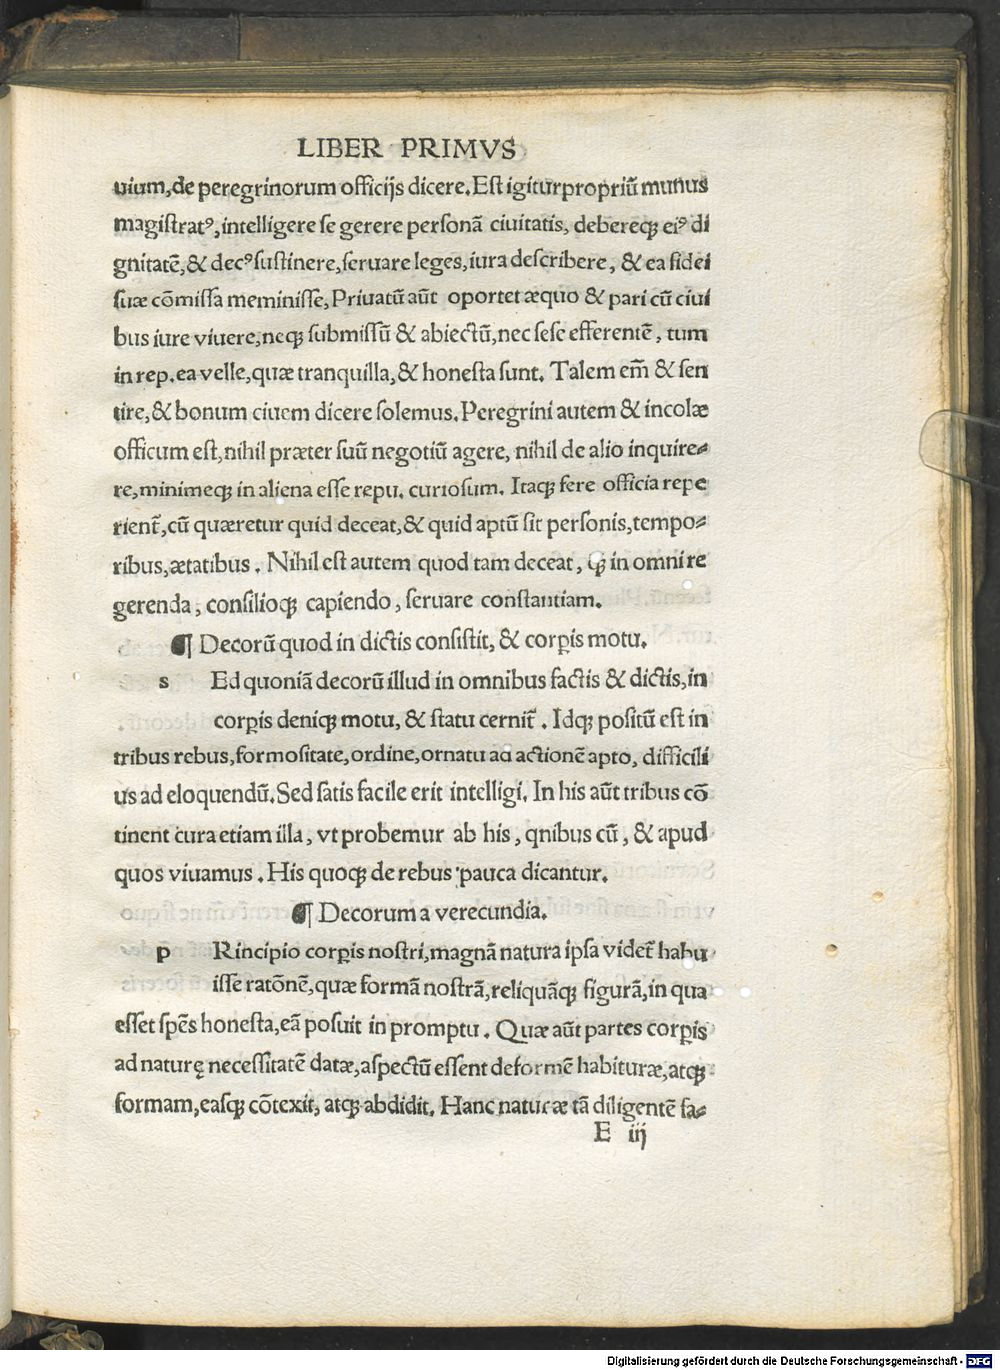 LIBER PRIMVS
uium, de peregrinorum officijs dicere. Est igitur propriũ munus
magistratꝰ, intelligere se gerere personã ciuitatis, debereqꝫ eiꝰ di
gnitatẽ, & decꝰ sustinere, seruare leges, iura describere, & ea fidei
suæ cõmissa meminisse, Priuatũ aũt oportet æquo & pari cũ ciui
bus iure viuere, neqꝫ submissũ & abiectũ, nec sese efferentẽ, tum
in rep. ea velle, quæ tranquilla, & honesta sunt. Talem em̃ & sen
tire, & bonum ciuem dicere solemus. Peregrini autem & incolæ
officum est, nihil præter suũ negotiũ agere, nihil de alio inquire⸗
re, minimeqꝫ in aliena esse repu. curiosum. Itaqꝫ fere officia repe
rient̃, cũ quæretur quid deceat, & quid aptũ sit personis, tempo⸗
ribus, ætatibus. Nihil est autem quod tam deceat, qꝫ in omni re
gerenda, consilioqꝫ capiendo, seruare constantiam.
¶ Decorũ quod in dictis consistit, & corꝑis motu.
s Ed quoniã decorũ illud in omnibus factis & dictis, in
corꝑis deniqꝫ motu, & statu cernit̃. Idqꝫ positũ est in
tribus rebus, formositate, ordine, ornatu ad actionẽ apto, difficili
us ad eloquendũ. Sed satis facile erit intelligi. In his aũt tribus cõ
tinent cura etiam illa, vt probemur ab his, qnibus cũ, & apud
quos viuamus. His quoqꝫ de rebus pauca dicantur.
¶ Decorum a verecundia.
p Rincipio corꝑis nostri, magnã natura ipsa videt̃ habu
isse ratõnẽ, quæ formã nostrã, reliquãqꝫ figurã, in qua
esset spẽs honesta, eã posuit in promptu. Quæ aũt partes corꝑis
ad naturę necessitatẽ datæ, aspectũ essent deformẽ habituræ, atqꝫ
formam, easqꝫ cõtexit, atqꝫ abdidit. Hanc naturæ tã diligentẽ fa⸗
E iij
Digitalisierung gefördert durch die Deutsche Forschungsgemeinschaft - DFG